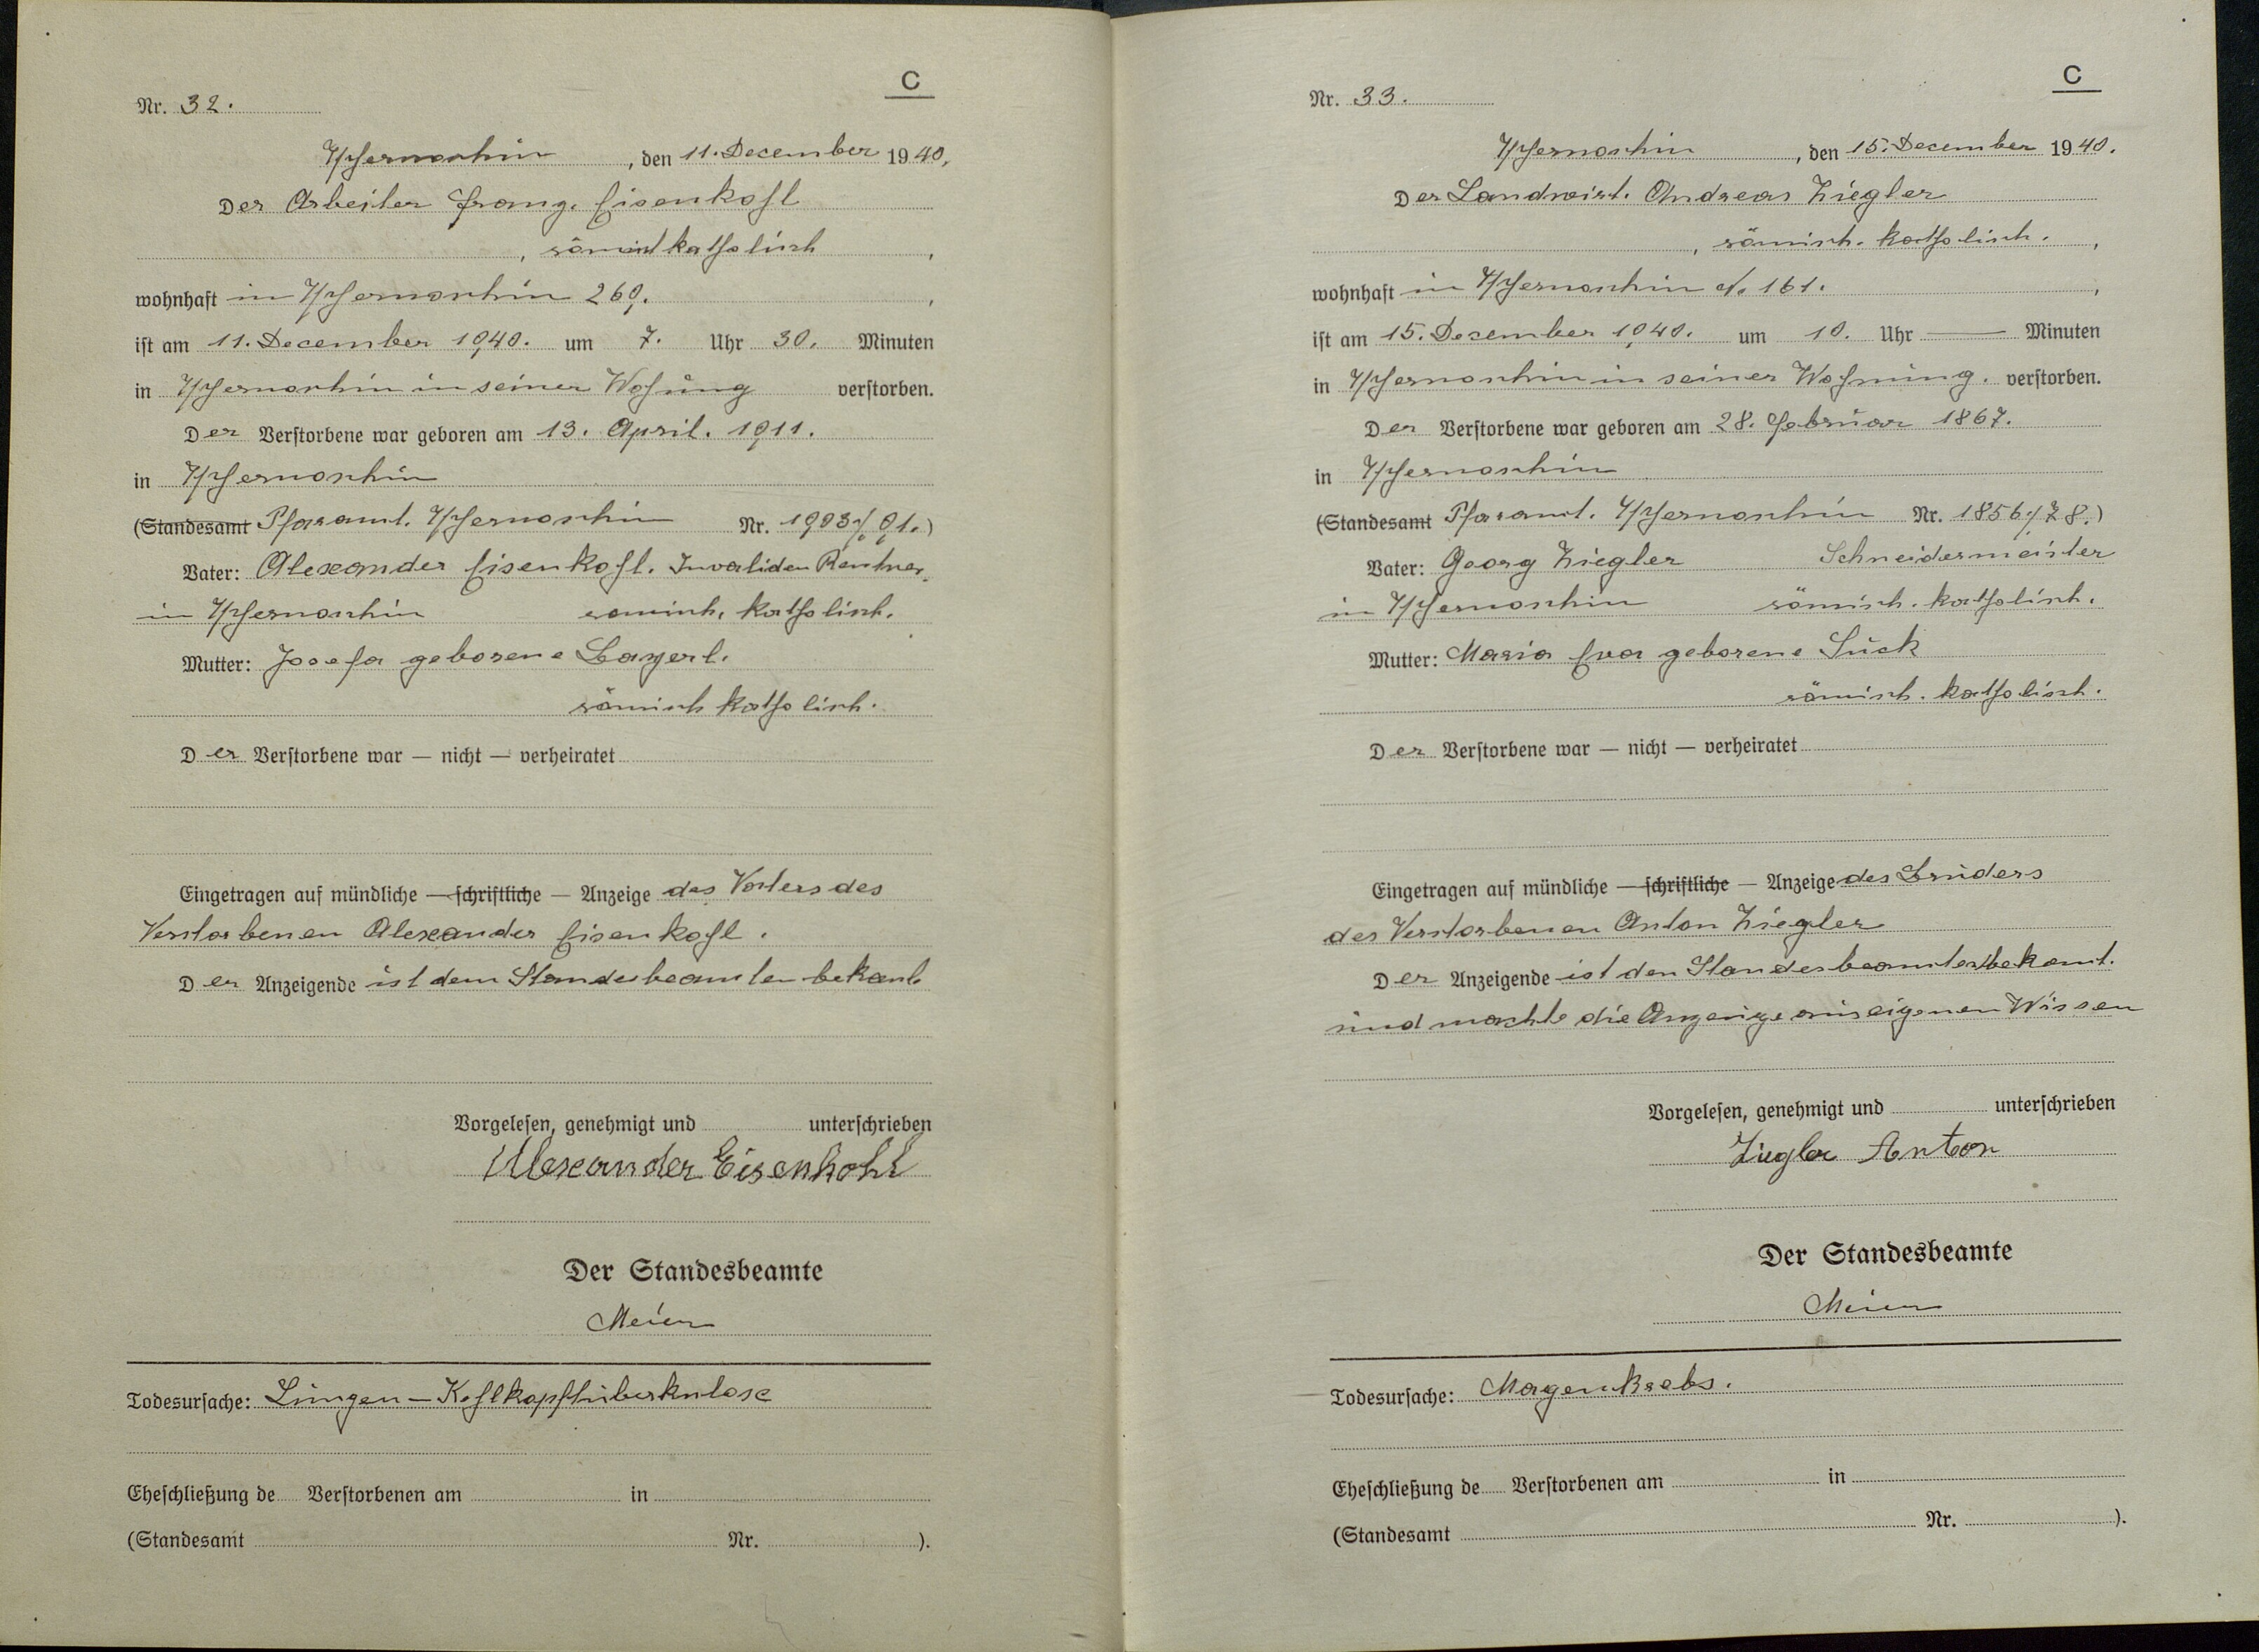 C
Nr. 32.
Tschernoschin, den 11. December 1940.
Der Arbeiter Franz. Eisenkohl
, römisch katholisch,
wohnhaft in Tschernoschin 260.,
ist am 11. December 1940. um 7. Uhr 30. Minuten
in Tschernoschin in seiner Wohung verstorben.
Der Verstorbene war geboren am 13. April. 1911.
in Tschernoschin
(Standesamt Pfaramt. Tschernoschin Nr. 1903/91.)
Vater: Alexander Eisenkohl. Invaliden Rentner.
in Tschernoschin römisch. katholisch.
Mutter: Josefa geborene Bayerl.
römisch katholisch.
Der Verstorbene war — nicht — verheiratet
Eingetragen auf mündliche — schriftliche — Anzeige des Vaters des
Verstorbenen Alexander Eisenkohl.
Der Anzeigende ist dem Standesbeamten bekant
Vorgelesen, genehmigt und unterschrieben
Alexander Eisenkohl
Der Standesbeamte
Meier
Todesursache: Lungen – Kehlkopftuberkulose
Eheschließung de Verstorbenen am in
(Standesamt Nr. ).
C
Nr. 33.
Tschernoschin, den 15. December 1940.
Der Landwirt. Andreas Ziegler
, römisch. katholisch.,
wohnhaft in Tschernoschin N. 161.,
ist am 15. Dezember 1940. um 10. Uhr — Minuten
in Tschernoschin in seiner Wohnung. verstorben.
Der Verstorbene war geboren am 28. Februar 1867.
in Tschernoschin
(Standesamt Pfaramt. Tschernoschin Nr. 1856/78.)
Vater: Georg Ziegler Schneidermeister
in Tschernoschin römisch. katholisch.
Mutter: Maria Eva geborene Suck
römisch. katholisch.
Der Verstorbene war — nicht — verheiratet
Eingetragen auf mündliche — schriftliche — Anzeige des Bruders
des Verstorbenen Anton Ziegler
Der Anzeigende ist den Standesbeamten bekamt.
und machte die Anzeige aus eigenen Wissen
Vorgelesen, genehmigt und unterschrieben
Ziegler Anton
Der Standesbeamte
Meier
Todesursache: Magenkrebs.
Eheschließung de Verstorbenen am in
(Standesamt Nr. ).